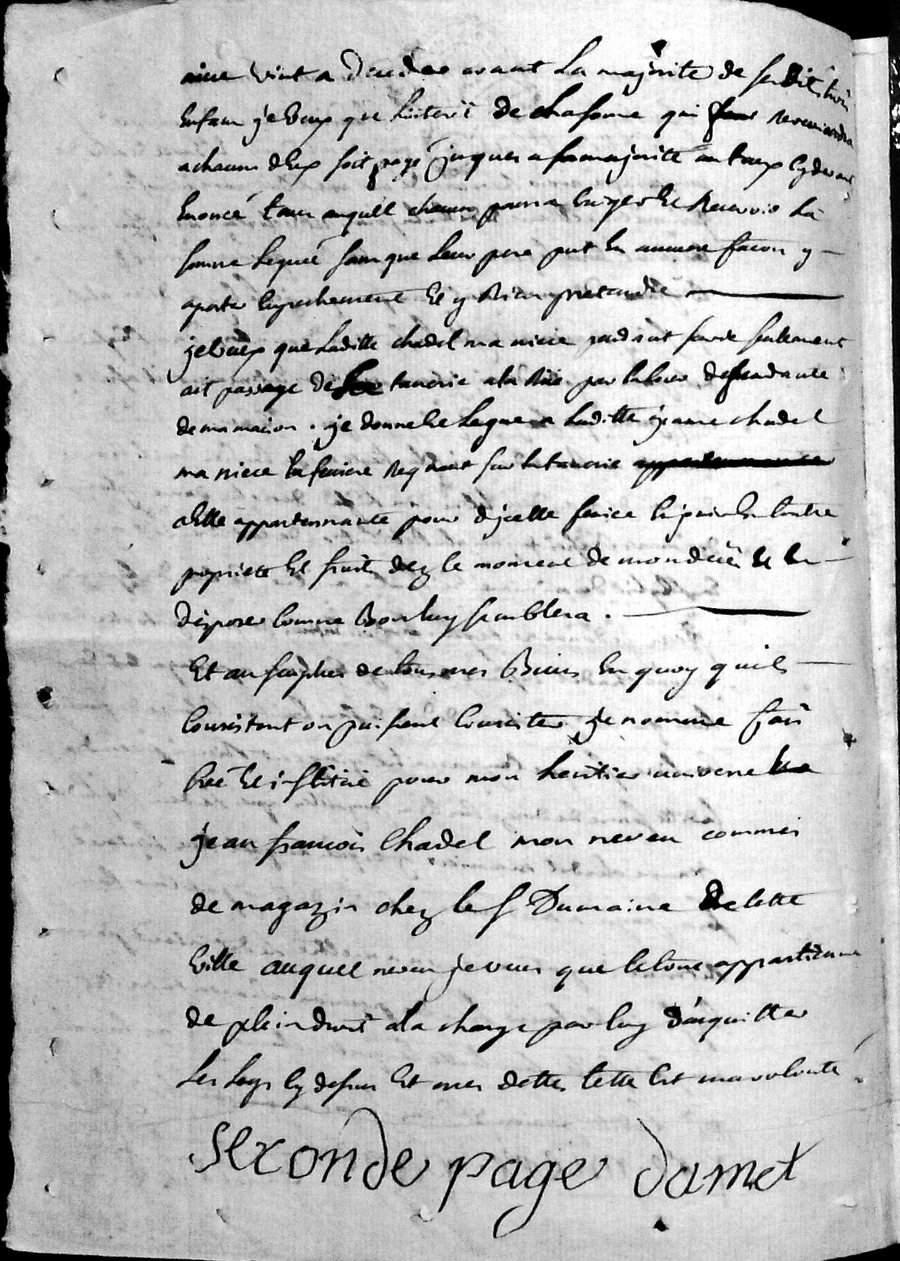 niece vint a deceder avant la majorite de sesdits trois
enfans je veux que linterêt de chasomme qui
a chacun deux soit payé jusques a sa majorité au taux cy devant
enoncé tems auquel chacun pourra exiger et recevoir la
somme leguée sans que leur pere put en aucune facon y
aporter empechement et y rien pretendre
je veux que laditte chadel ma niece pendant sa vie seulement
ait passage de tanerie a la rue par la cour dependante
de ma maison. je donne et legue a laditte jeanne chadel
ma niece la servant sur la tanerie
a elle appartennante pour dycelle jouir en toutte
propriete et fruits dez le moment de mon deces et en
disposer comme bon luy semblera.
Et au surplus de tous mes biens en quoy quils
consistent ou puissent consister je nomme fais
creé et institué pour mon heritier universel
jean francois Chadel mon neveu commis
de magazin chez le s Dumaine de cette
ville auquel neveu je veux que le tout appartienne
de plein droit a la charge par luy d'acquitter
les legs cy dessus et mes dettes cette est ma volonté.
seconde page damet